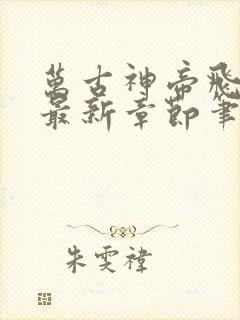 萬古神帝飛
最新章節筆
朱雯禕